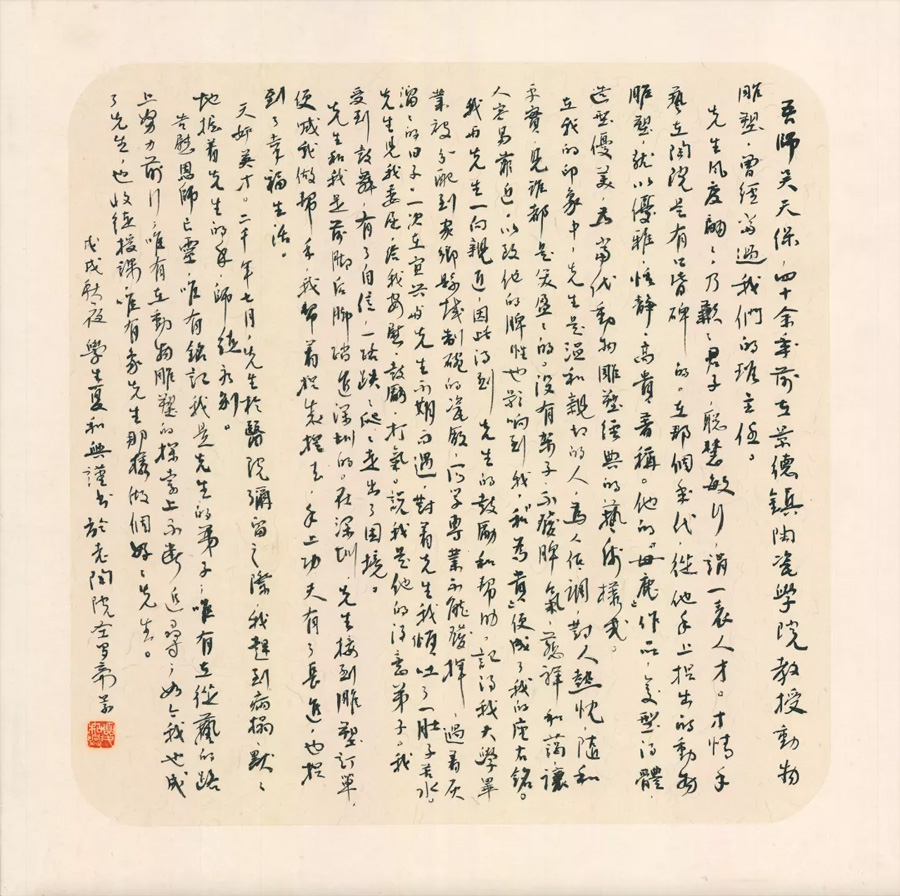 吾師吴天保，四十余年前在景德鎮陶瓷學院教授動物
雕塑，曾經當過我們的班主任。
先生風度翩翩，乃謙謙君子，聪慧敏行，一表人才。才情手
藝在陶院是有口皆碑的。在那個年代，從他手上捏出的動物
雕塑，就以優雅、恬静、高贵著稱。他的《母鹿》作品，造型得體，
造型優美，為當代動物雕塑經典的藝術樣式。
在我的印象中，先生是温和親切的人，為人低調，對人熱忱，隨和
平實，見誰都是笑盈盈的。没有架子，不發脾氣，慈祥和藹，讓
人容易靠近，以致他的脾性也影响到我，“和為貴”便成了我的座右銘。
我與先生一向親近，因此得到先生的鼓勵和帮助。記得我大學畢
業被分配到家鄉縣城制碗的瓷廠，所學專業不能發揮，過着灰
溜溜的日子。一次在宜兴與先生不期而遇，對着先生我傾吐了一肚子苦水。
先生見我委屈，给我安慰、鼓勵、打氣。説我是他的得意弟子。我
受到鼓舞，有了自信，一路跌跌爬爬走出了困境。
先生和我是前脚后脚踏進深圳的。在深圳，先生接到雕塑訂單，
便喊我做帮手，我帮着捏來捏去，手上功夫有了長進，也捏
到了幸福生活。
天妒英才。二千年七月，先生於醫院彌留之際，我趕到病榻，默默
地握着先生的手，師徒永别。
告慰恩師亡靈，唯有銘記我是先生的弟子，唯有在從藝的路
上努力前行，唯有在動物雕塑的探索上不断追尋，如今我也成
了先生，也收徒授課，唯有象先生那樣做個好好先生。
戊戌秋夜 學生夏和興謹書於老陶院